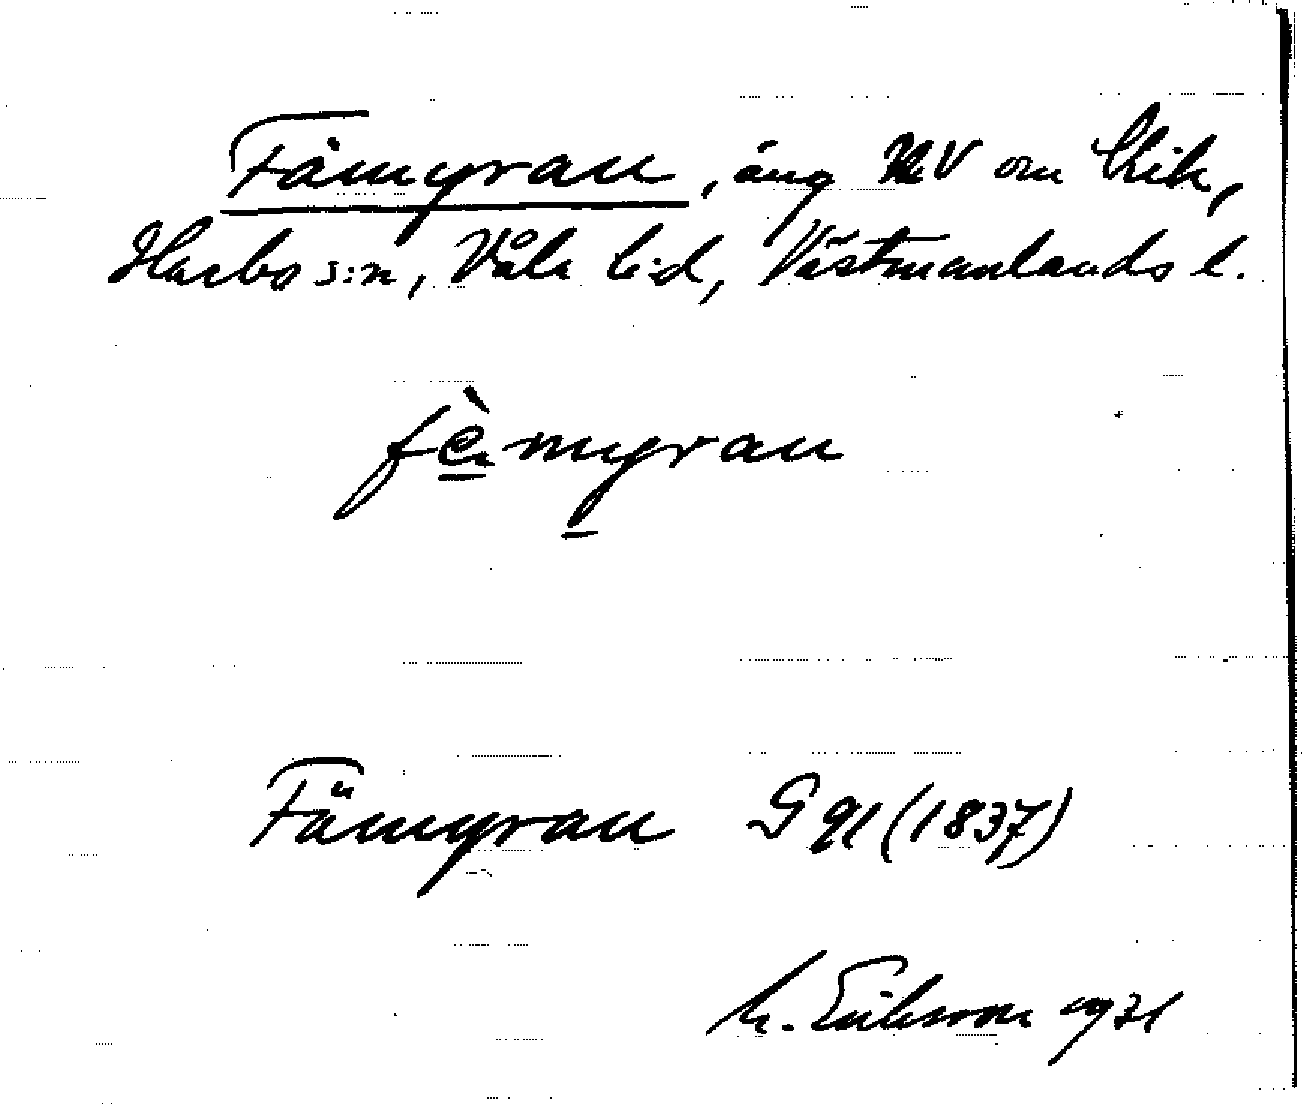 Fämyran, äng NV om Vik,
Harbo s:n, Våla h:d, Västmanlands l.
fè̱myran
Fämyran G 91 (1837)
M. Eriksson 1931